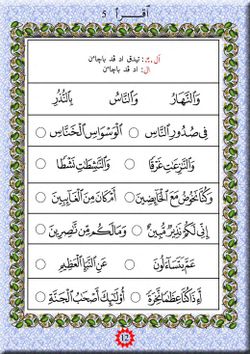 اقرأ 5
ال ... : تيدق اد قد باچاءن
ال: اد قد باچاءن
وَالنَّهَارِ وَالنَّاسُ بِالنُّذُرِ
فِي صُدُورِ النَّاسِ الْوَسْوَاسِ الْخَنَّاسِ
وَالنّٰزِعٰتِ غَرْقًا وَالنّٰشِطٰتِ نَشْطًا
وَكُنَّا نَخُوضُ مَعَ الْخَآئِضِينَ أَمْ كَانَ مِنَ الْغَآئِبِينَ
إِنِّي لَكُمْ نَذِيرٌ مُّبِينٌ وَمَا لَكُم مِّن نّٰصِرِينَ
عَمَّ يَتَسَآءَلُونَ عَنِ النَّبَإِ الْعَظِيمِ
أَءِذَا كُنَّا عِظٰمًا نَّخِرَةً أُولٰٓئِكَ أَصْحٰبُ الْجَنَّةِ
12